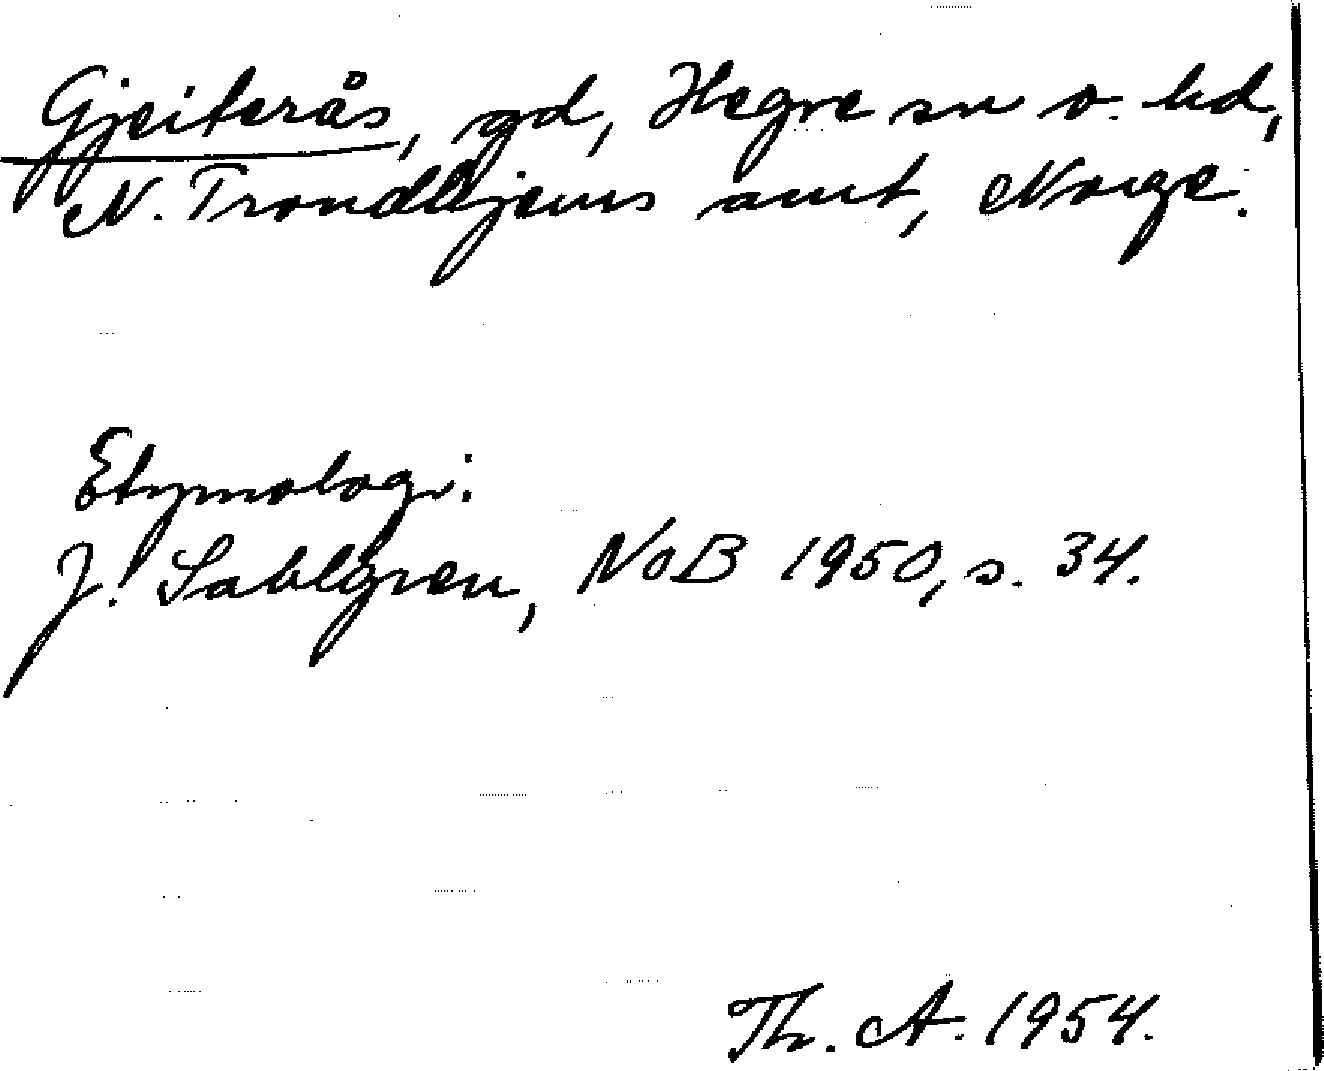 Gjeiterås, gd, Hegre sn o. hd,
N. Trondhjems amt, Norge.
Etymologi:
J. Sahlgren, NoB 1950, s. 34.
Th. A. 1954.